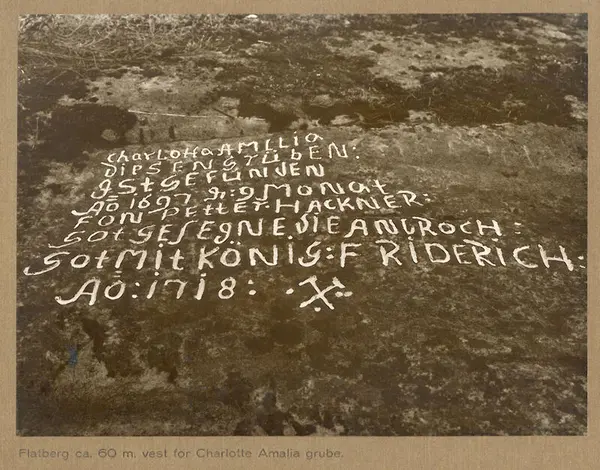 CharLottaAMILIA
DIESENSTÜBEN:
gStGEFUNDEN
Aō 1697 d: 9 MONAt
FON PEttER HACKNER:
GOtGESEGNE DIE ANDROCH:
GOtMit KÖNIG: FRIDERICH:
Aō: 1718:
Flatberg ca. 60 m. vest for Charlotte Amalia grube.